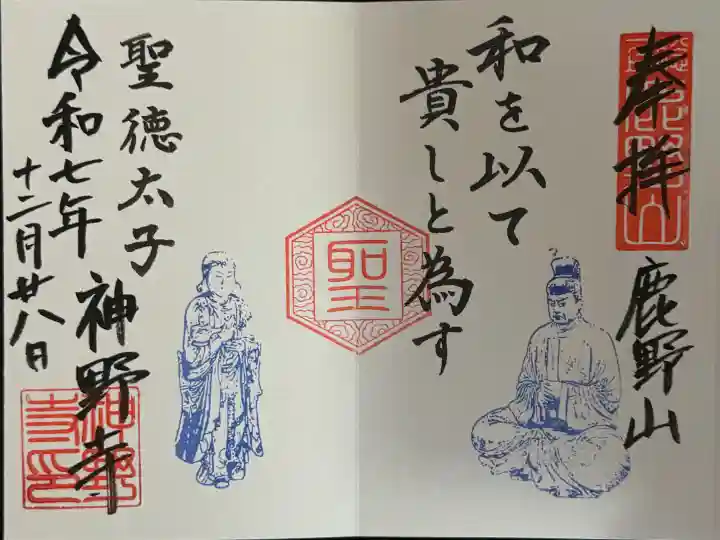 奉拝
鹿野山
和を以て
貴しと為す
聖
聖徳太子
神野寺
令和七年
十二月廿八日
神野
寺印